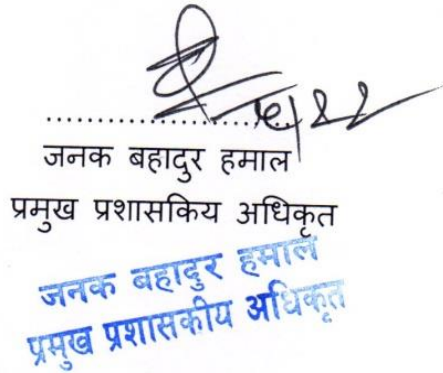 ........................
जनक बहादुर हमाल
प्रमुख प्रशासकिय अधिकृत
जनक बहादुर हमाल
प्रमुख प्रशासकीय अधिकृत